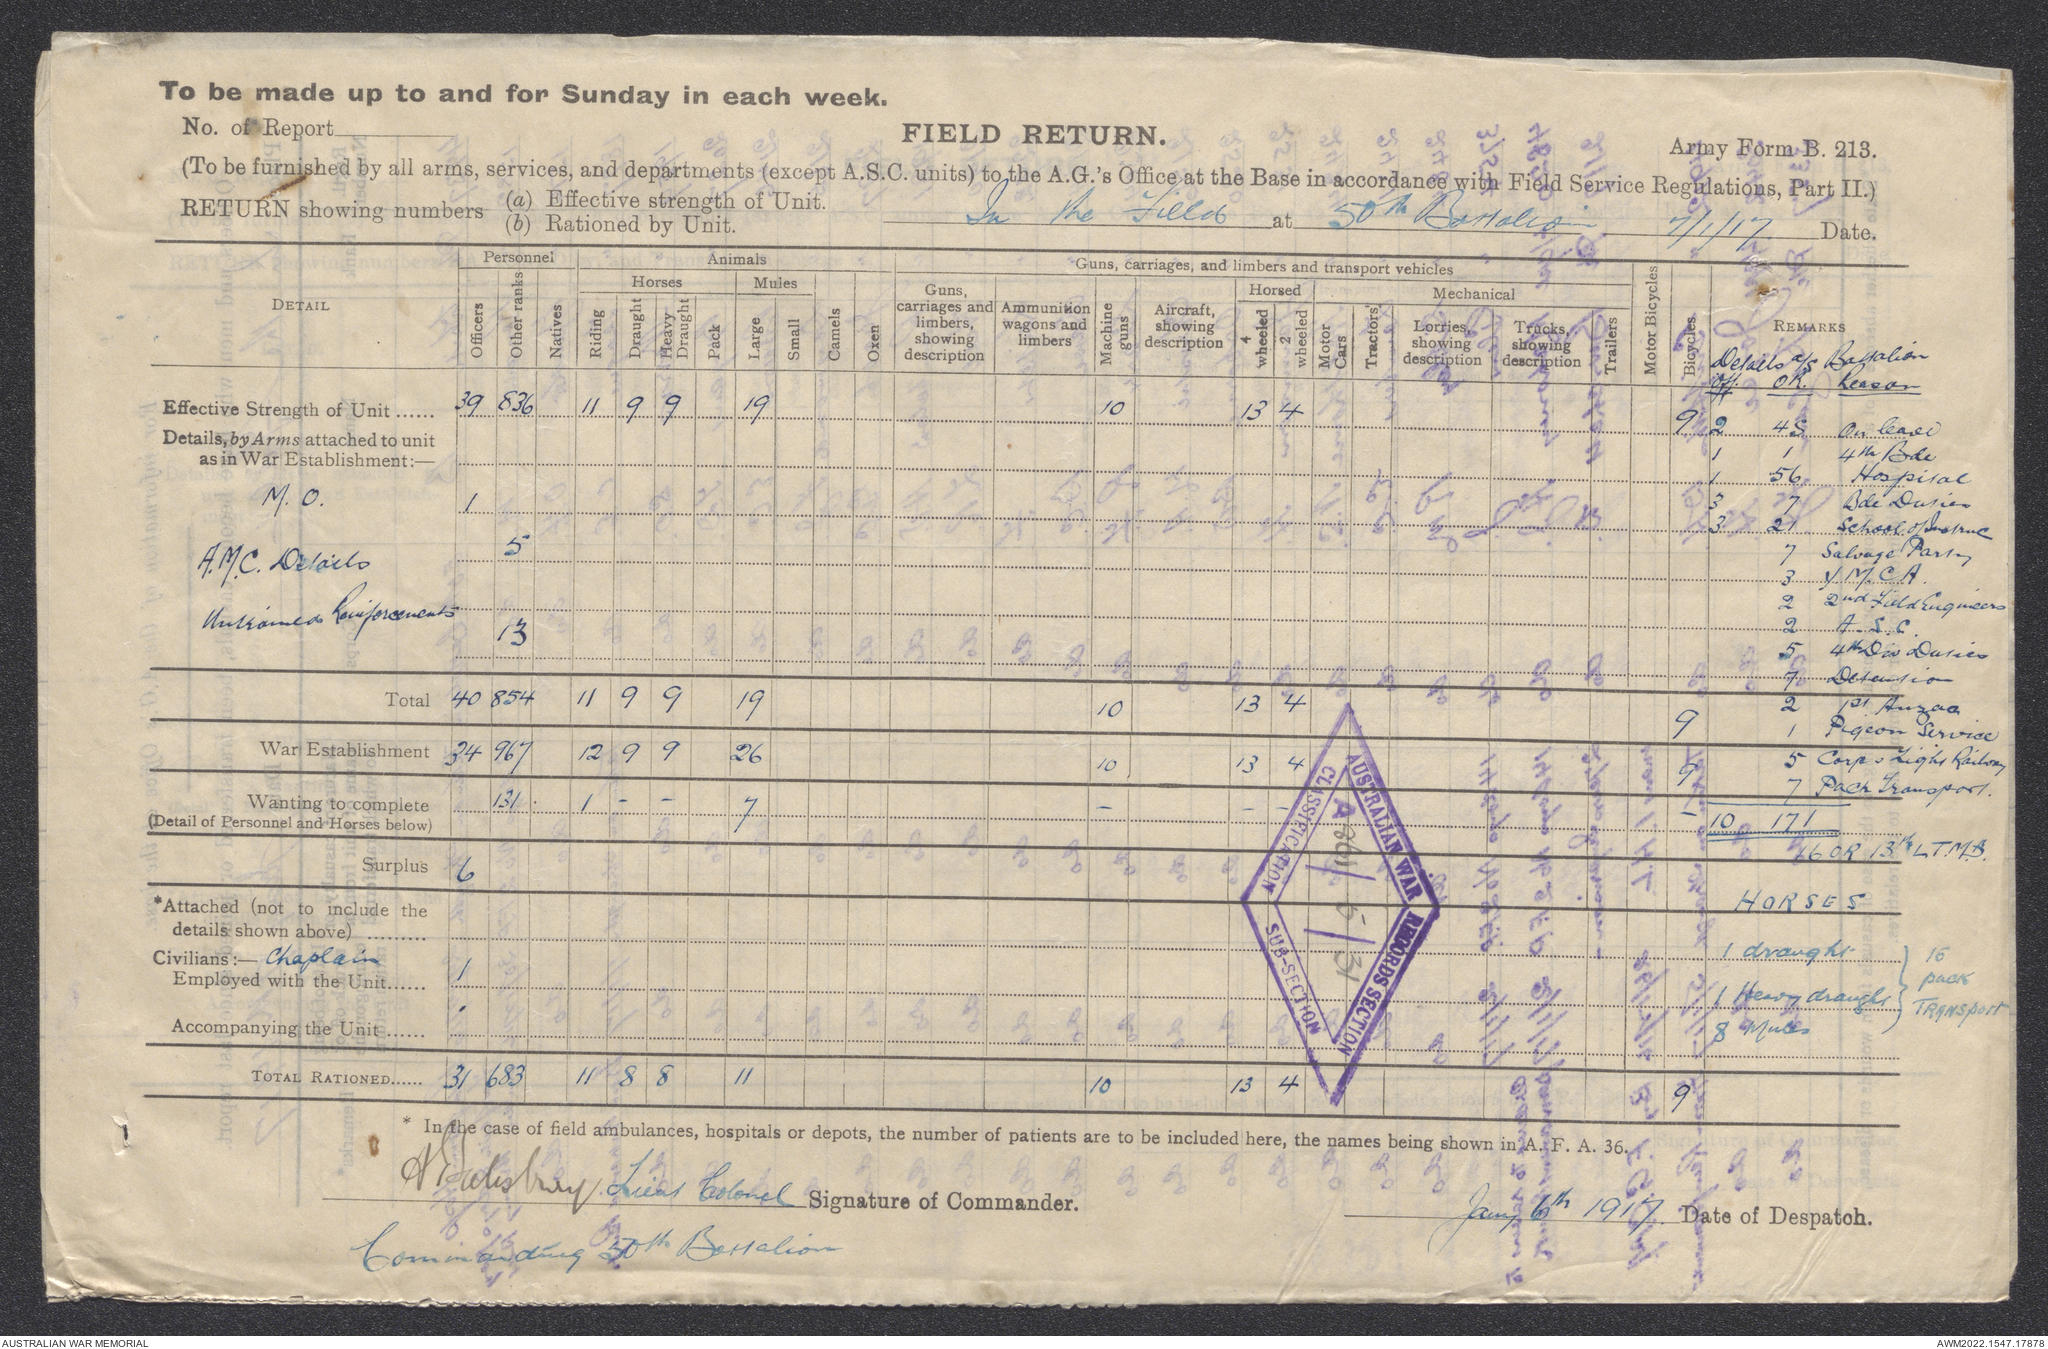 To be made up to and for Sunday in each week.
No. of Report
FIELD RETURN.
Army Form B. 213.
(To be furnished by all arms, services, and departments (except A.S.C. units) to the A.G.'s Office at the Base in accordance with Field Service Regulations, Part II.)
RETURN showing numbers (a) Effective strength of Unit.
(b) Rationed by Unit.
In the Field at 50th Battalion 7/1/17 Date.
DETAIL
Personnel
Animals
Guns, carriages, and limbers and transport vehicles
Horses
Mules
Horsed
Mechanical
Officers
Other ranks
Natives
Riding
Draught
Heavy Draught
Pack
Large
Small
Camels
Oxen
Guns, carriages and limbers, showing description
Ammunition wagons and limbers
Machine guns
Aircraft, showing description
4 wheeled
2 wheeled
Motor Cars
Tractors
Lorries, showing description
Trucks, showing description
Trailers
Motor Bicycles
Bicycles
REMARKS
Details a/s Battalion
Off. OR. Reason
Effective Strength of Unit ...... 39 836 11 9 9 19 10 13 4 9
Details, by Arms attached to unit
as in War Establishment:—
M.O. 1
A.M.C. Details 5
Untrained Reinforcements 13
Total 40 854 11 9 9 19 10 13 4 9
War Establishment 34 967 12 9 9 26 10 13 4 9
Wanting to complete 131 1 - - 7 - - - -
(Detail of Personnel and Horses below)
Surplus 6
*Attached (not to include the
details shown above) .........
Civilians:— Chaplain
Employed with the Unit...... 1
Accompanying the Unit ......
TOTAL RATIONED...... 31 683 11 8 8 11 10 13 4 9
2 45 On leave
1 1 4th Bde
1 56 Hospital
3 7 Bde Duties
3 21 School of Instruc
7 Salvage Party
3 Y.M.C.A.
2 2nd Field Engineers
2 A.S.C.
5 4th Div Duties
7 Detention
2 1st Anzac
1 Pigeon Service
5 Corps Light Railway
7 Pack Transport.
10 171
16 OR 13th L.T.M.B.
HORSES
1 draught
1 Heavy draught
8 Mules
16
pack
TRANSPORT
AUSTRALIAN WAR RECORDS SECTION
CLASSIFICATION SUB-SECTION
* In the case of field ambulances, hospitals or depots, the number of patients are to be included here, the names being shown in A. F. A. 36.
Salisbury Lieut Colonel Signature of Commander.
Commanding 50th Battalion
Jany 6th 1917 Date of Despatch.
AUSTRALIAN WAR MEMORIAL
AWM2022.1547.17878